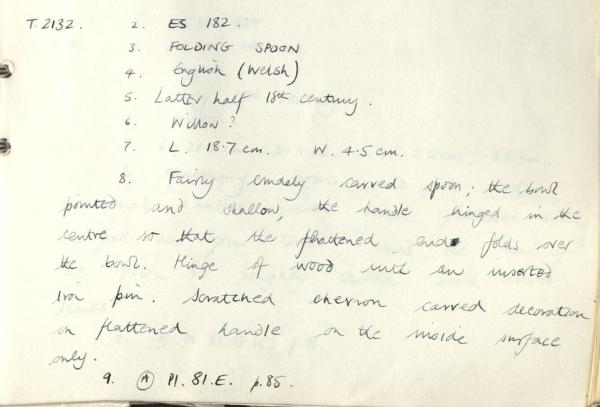 T.2132. 2. ES 182.
3. FOLDING SPOON
4. English (Welsh)
5. Latter half 18th century.
6. Willow?
7. L. 18.7 cm. W. 4.5 cm.
8. Fairly crudely carved spoon; the bowl
pointed and shallow, the handle hinged in the
centre so that the flattened end folds over
the bowl. Hinge of wood with an inserted
iron pin. Scratched chevron carved decoration
on flattened handle on the inside surface
only.
9. A Pl. 81.E. p.85.